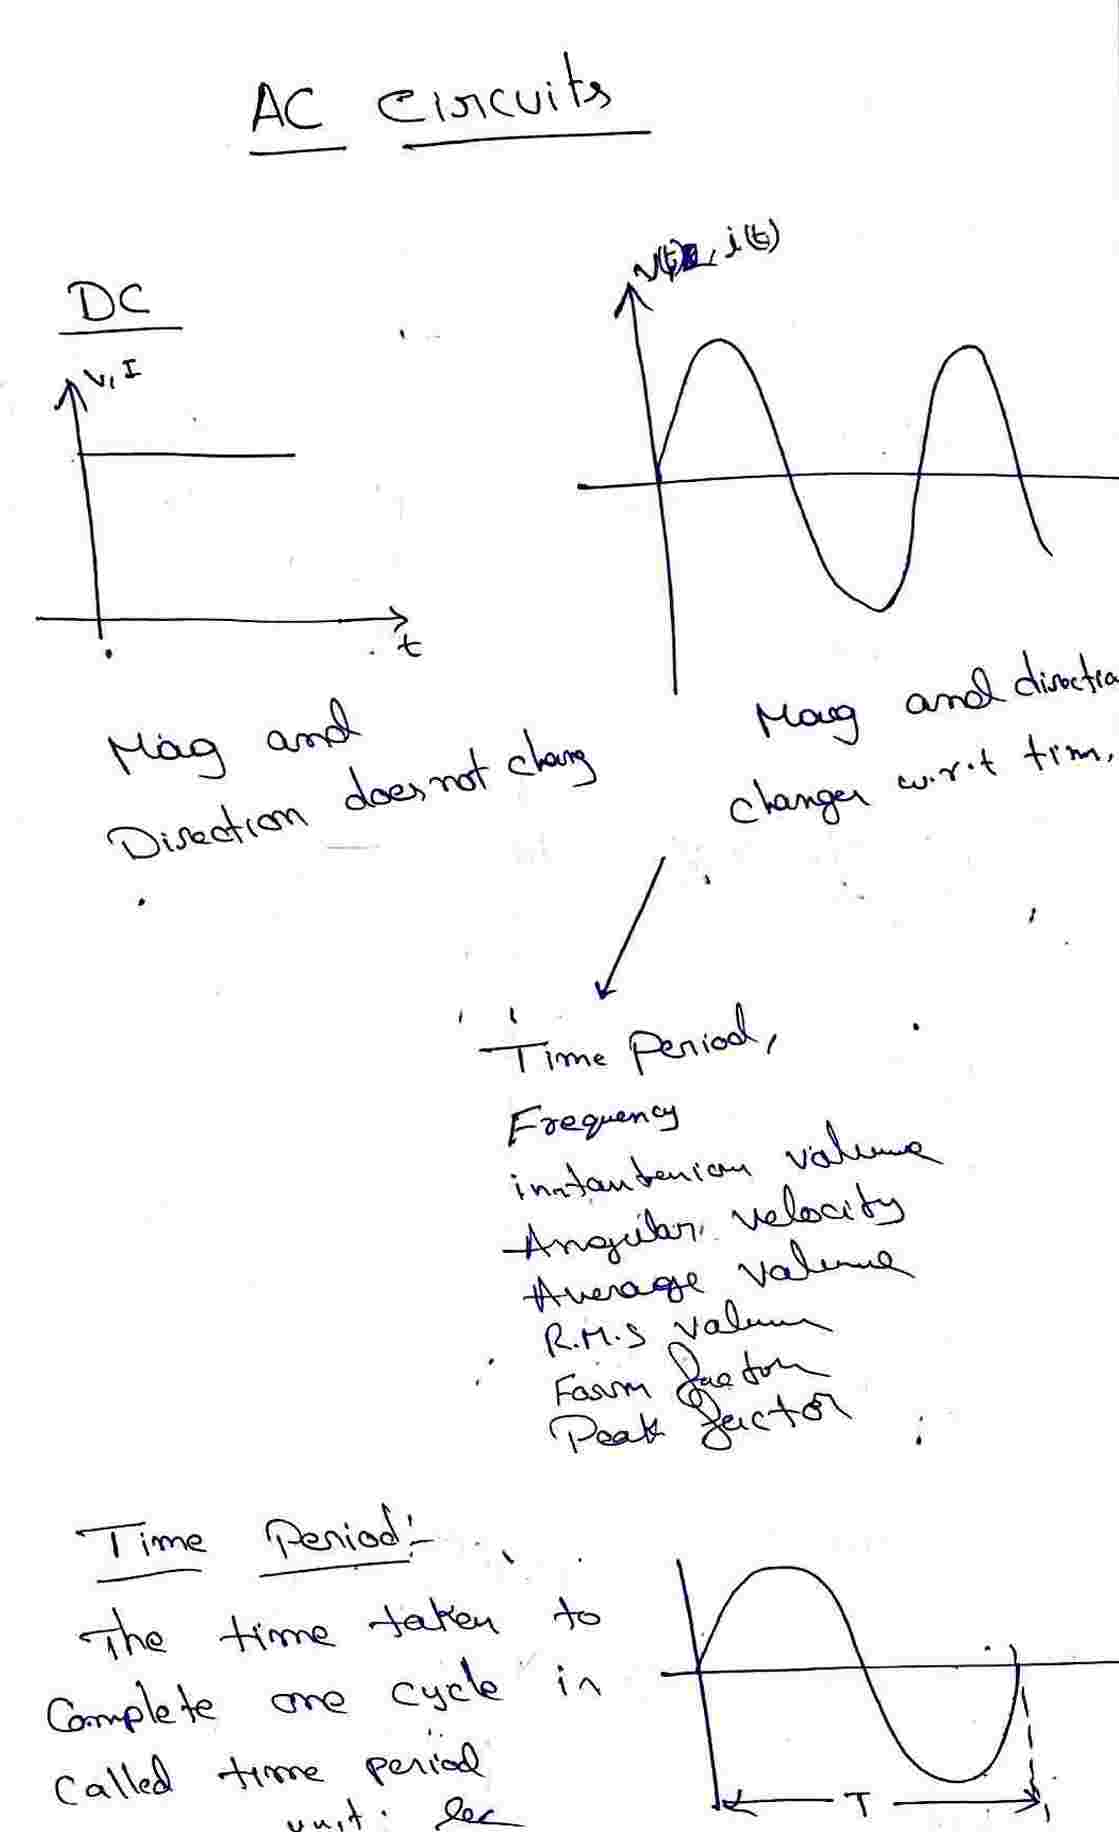 AC Circuits
DC
V, I
t
v(t), i(t)
Mag and
Direction does not chang
Mag and directio
changes w.r.t tim.
Time Period,
Frequency
instantenious value
Angular velocity
Average value
R.M.S value
Form factor
Peak factor
Time Period:-
The time taken to
Complete one cycle is
Called time period
unit: Sec
T